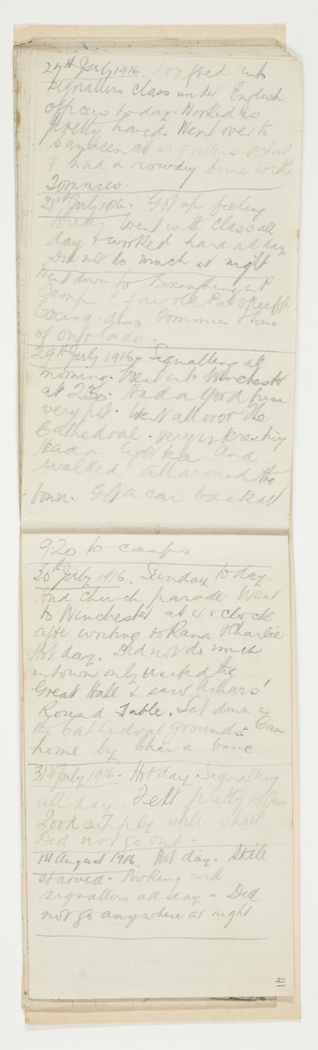 27th July 1916. into
signallers class under English
officers today. Worked us
pretty hard. Went over to
canteen at signallers school
& had a rowdy time with
Tommies.
28th July 1916. Got up feeling
. Went with class all
day & worked hard all day
Did not do much at night
Went down to
Camp & saw
boxing also Tommies & some
of our lads.
29th July 1916. Signalling all
morning. Went into Winchester
at 2.30. Had a good time
very hot. Went all over the
Cathedral. Very interesting
Had a tea and
walked all around the
town. Got a car back at
9.20 to camp.
30th July 1916. Sunday today
had Church parade. Went
to Winchester at 4 o'clock
after writing to Rana & Charlie
Hot day. Did not do much
in town only visited the
Great Hall & saw Arthurs'
Round Table. Sat down in
the Cathedral Grounds. Came
home by
31st July 1916. Hot day. Signalling
all day. Felt pretty
Food supply still short
Did not go out.
1st August 1916. Hot day. Still
starved. Working with
signallers all day. Did
not go anywhere at night